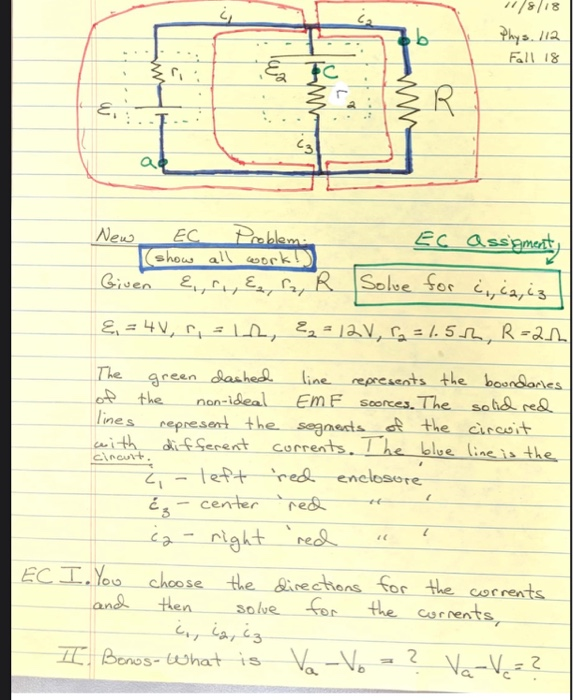 11/8/18
Phys. 112
Fall 18
i₁
i₂
b
r₁
ε₂
C
r₂
R
ε₁
i₃
a
New EC Problem:
EC assigment,
(show all work!)
Given ε₁, r₁, ε₂, r₂, R
Solve for i₁, i₂, i₃
ε₁ = 4V, r₁ = 1Ω, ε₂ = 12V, r₂ = 1.5Ω, R = 2Ω
The green dashed line represents the boundaries
of the non-ideal EMF soorces. The solid red
lines represent the segments of the circuit
with different currents. The blue line is the
circuit.
i₁ - left 'red enclosure'
i₃ - center 'red " '
i₂ - right 'red " '
EC I. You choose the directions for the currents
and then solve for the currents,
i₁, i₂, i₃
II. Bonus - What is Va - Vb = ? Va - Vc = ?